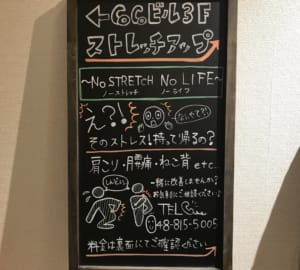 ←GoGoビル3F
ストレッチアップ
~NO STRETCH NO LIFE~
ノーストレッチ ノーライフ
え?!
なんやて?!
そのストレス!持って帰るの?
肩こり・腰痛・ねこ背 etc.
しんどい
一緒に改善しませんか?
お気軽にご相談ください♪
TEL
048-815-5005
料金は裏面にてご確認ください